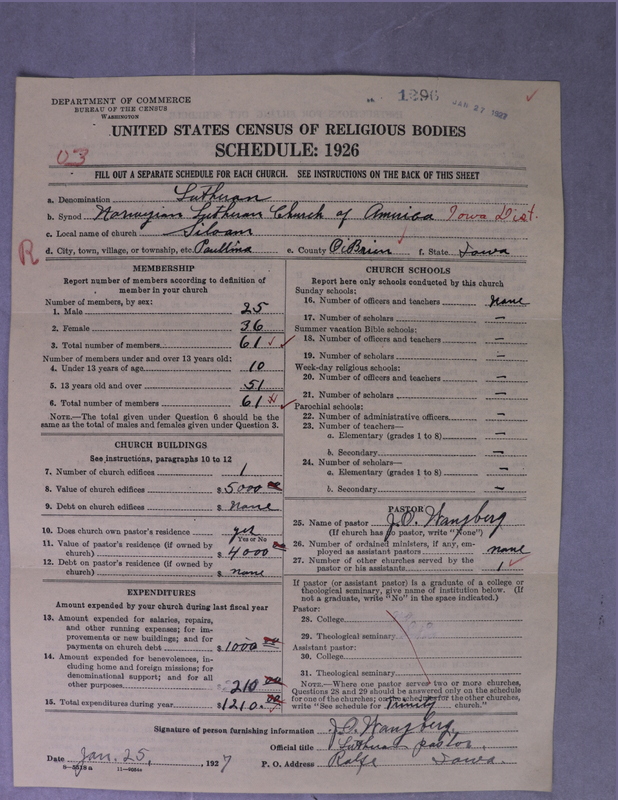 1296 JAN 27 1927
DEPARTMENT OF COMMERCE
BUREAU OF THE CENSUS
WASHINGTON
UNITED STATES CENSUS OF RELIGIOUS BODIES
SCHEDULE: 1926
03
FILL OUT A SEPARATE SCHEDULE FOR EACH CHURCH. SEE INSTRUCTIONS ON THE BACK OF THIS SHEET
a. Denomination Lutheran
b. Synod Norwegian Lutheran Church of America Iowa Dist.
c. Local name of church Siloam
R d. City, town, village, or township, etc. Paullina e. County O'Brien f. State Iowa
MEMBERSHIP
Report number of members according to definition of
member in your church
Number of members, by sex:
1. Male 25
2. Female 36
3. Total number of members. 61
Number of members under and over 13 years old:
4. Under 13 years of age 10
5. 13 years old and over 51
6. Total number of members 61
NOTE.—The total given under Question 6 should be the
same as the total of males and females given under Question 3.
CHURCH BUILDINGS
See instructions, paragraphs 10 to 12
7. Number of church edifices 1
8. Value of church edifices $5000 00
9. Debt on church edifices $ none
10. Does church own pastor's residence yes
Yes or No
11. Value of pastor's residence (if owned by
church) $4000 00
12. Debt on pastor's residence (if owned by
church) $ none
EXPENDITURES
Amount expended by your church during last fiscal year
13. Amount expended for salaries, repairs,
and other running expenses; for im-
provements or new buildings; and for
payments on church debt $1000 00
14. Amount expended for benevolences, in-
cluding home and foreign missions; for
denominational support; and for all
other purposes $210 00
15. Total expenditures during year $1210.00
CHURCH SCHOOLS
Report here only schools conducted by this church
Sunday schools:
16. Number of officers and teachers none
17. Number of scholars —
Summer vacation Bible schools:
18. Number of officers and teachers —
19. Number of scholars —
Week-day religious schools:
20. Number of officers and teachers —
21. Number of scholars —
Parochial schools:
22. Number of administrative officers —
23. Number of teachers—
a. Elementary (grades 1 to 8) —
b. Secondary —
24. Number of scholars—
a. Elementary (grades 1 to 8) —
b. Secondary —
PASTOR
25. Name of pastor J.O. Wangberg
(If church has no pastor, write "None")
26. Number of ordained ministers, if any, em-
ployed as assistant pastors none
27. Number of other churches served by the
pastor or his assistants 1
If pastor (or assistant pastor) is a graduate of a college or
theological seminary, give name of institution below. (If
not a graduate, write "No" in the space indicated.)
Pastor:
28. College
29. Theological seminary
Assistant pastor:
30. College
31. Theological seminary
NOTE.—Where one pastor serves two or more churches,
Questions 28 and 29 should be answered only on the schedule
for one of the churches; on the schedule for the other churches,
write "See schedule for Trinity church."
Signature of person furnishing information J.O. Wangberg,
Official title Lutheran pastor,
Date Jan. 25, 1927 P. O. Address Iowa.